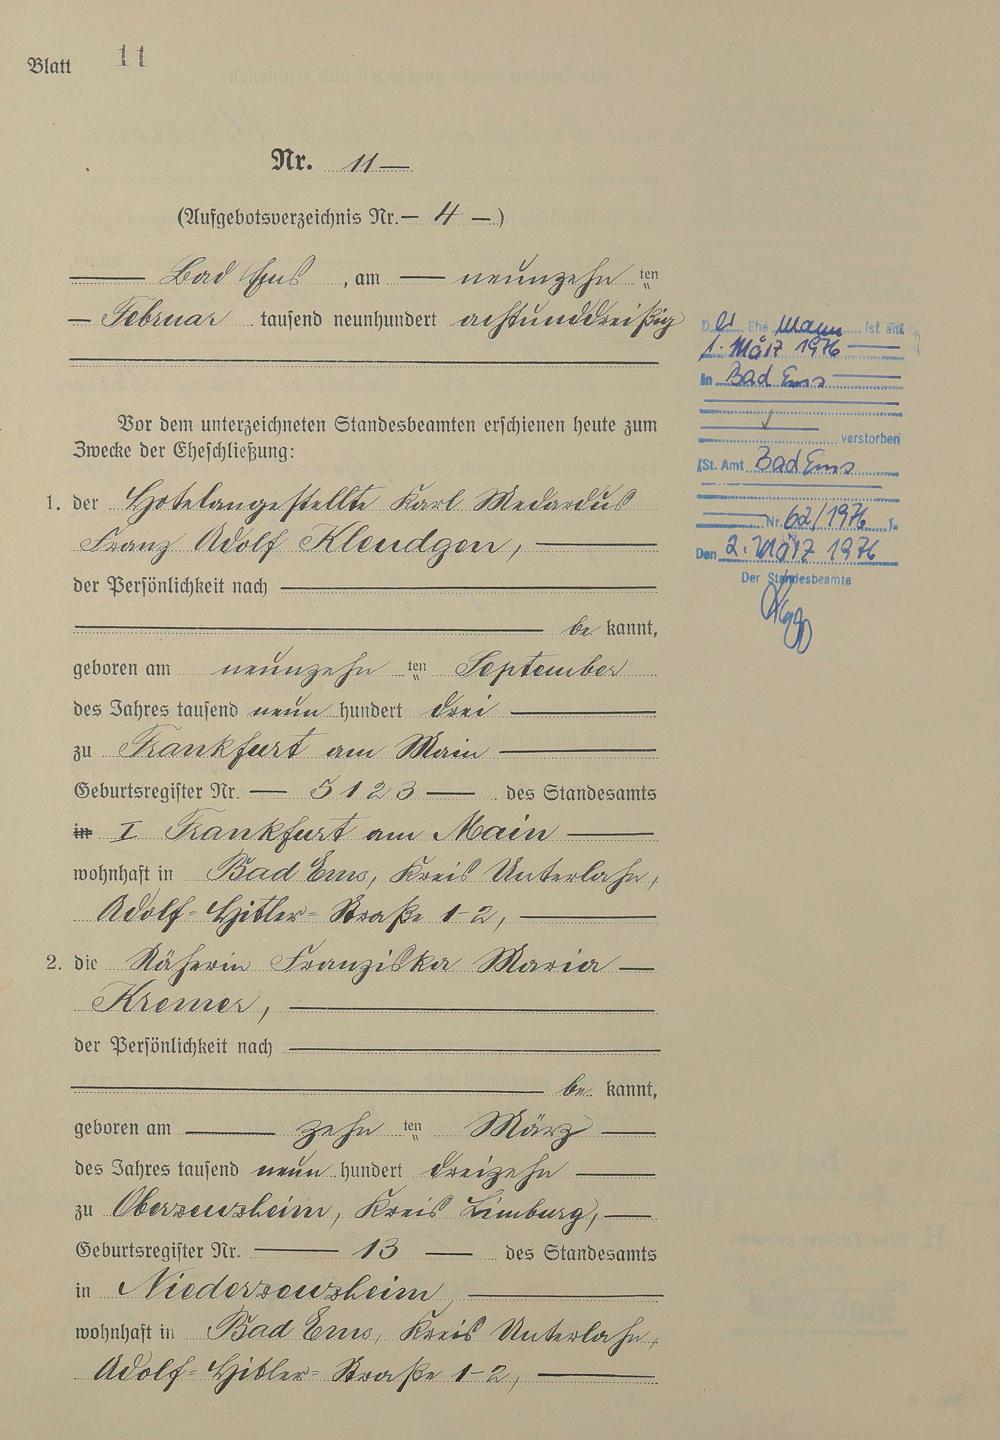 Blatt 11
Nr. 11 —
(Aufgebotsverzeichnis Nr. — 4 —)
Bad Ems, am — neunzehn ten
— Februar tausend neunhundert achtunddreißig
Vor dem unterzeichneten Standesbeamten erschienen heute zum
Zwecke der Eheschließung:
1. der Hotelangestellte Karl Medardus
Franz Adolf Kleudgen, —
der Persönlichkeit nach —
— be kannt,
geboren am neunzehn ten September
des Jahres tausend neun hundert drei —
zu Frankfurt am Main —
Geburtsregister Nr. — 5123 — des Standesamts
in I Frankfurt am Main —
wohnhaft in Bad Ems, Kreis Unterlahn,
Adolf-Hitler-Straße 1-2, —
2. die Näherin Franziska Maria —
Kremer, —
der Persönlichkeit nach —
— be kannt,
geboren am — zehn ten März —
des Jahres tausend neun hundert dreizehn —
zu Oberzeuzheim, Kreis Limburg, —
Geburtsregister Nr. — 13 — des Standesamts
in Niederzeuzheim, —
wohnhaft in Bad Ems, Kreis Unterlahn,
Adolf-Hitler-Straße 1-2, —
D er Ehe Mann ist am
1. März 1976 —
in Bad Ems —
verstorben
(St. Amt Bad Ems
— Nr. 62/1976 ).
Den 2. März 1976
Der Standesbeamte